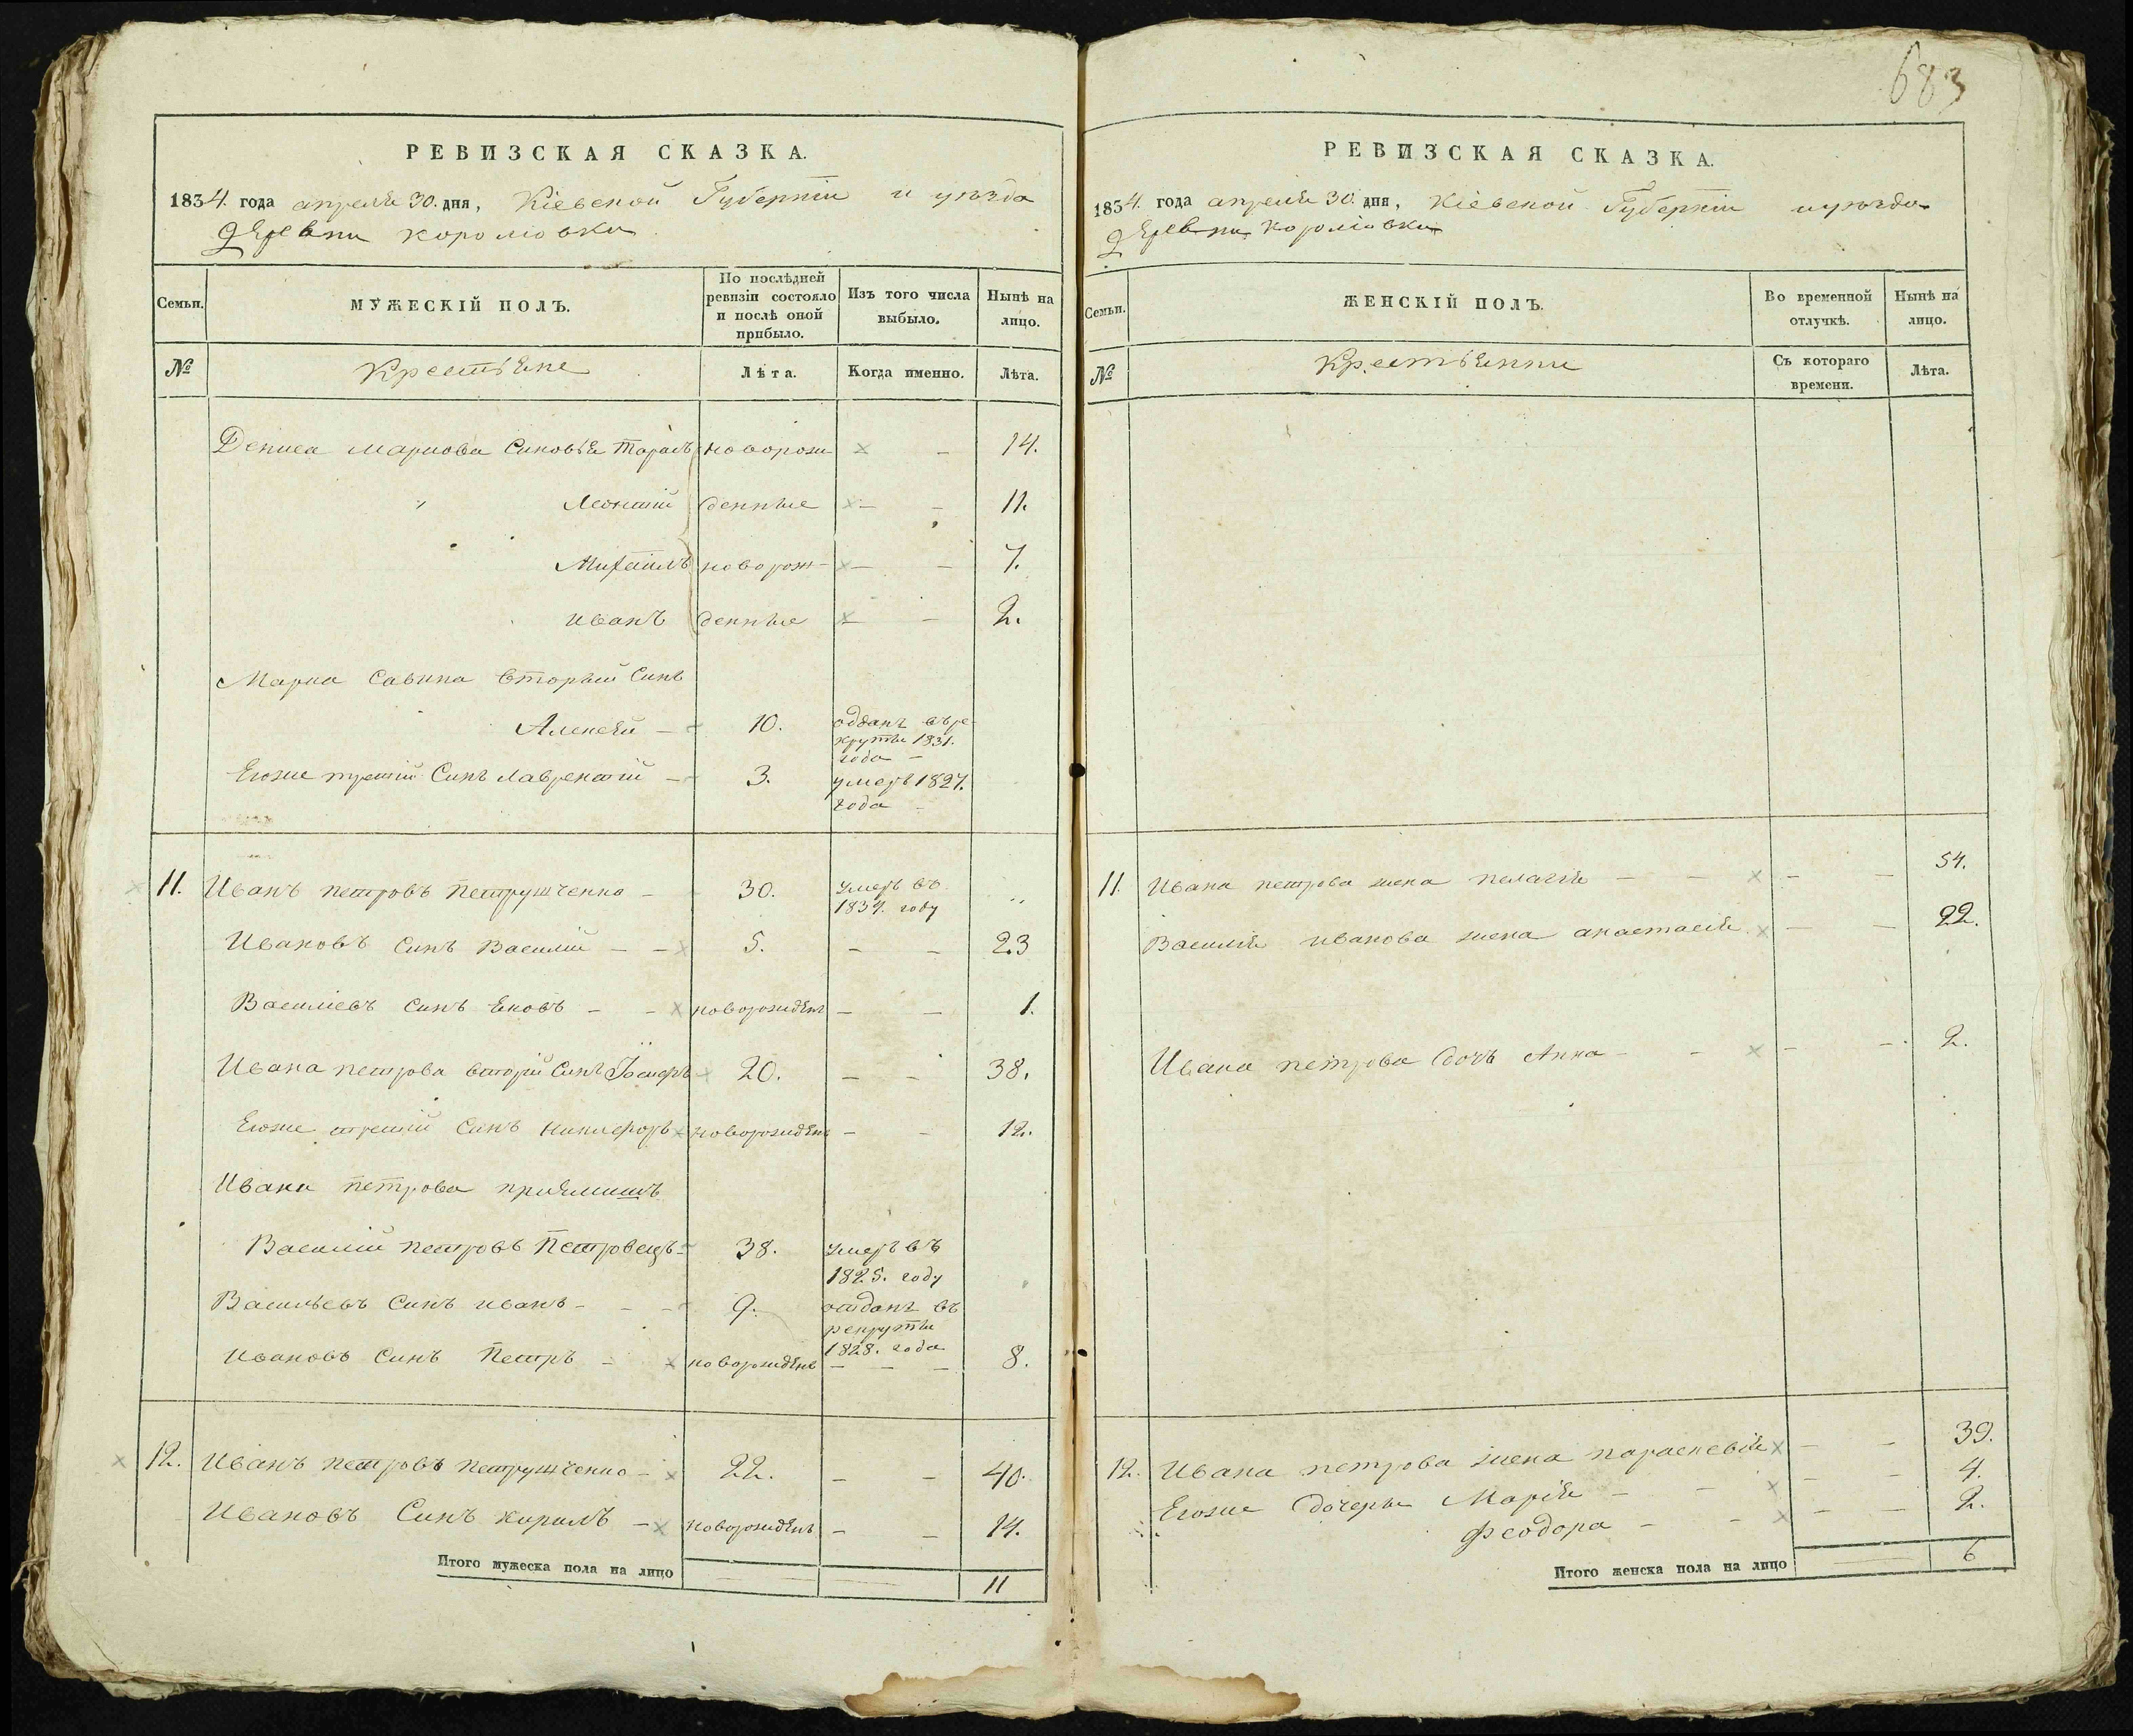 683
РЕВИЗСКАЯ СКАЗКА.
1834. года апреля 30. дня, Кіевской Губерніи и уѣзда
деревни королювки
Семьи.
МУЖЕСКІЙ ПОЛЪ.
По послѣдней ревизіи состояло и послѣ оной прибыло.
Изъ того числа выбыло.
Нынѣ на лицо.
№
Крестьяне
Лѣта.
Когда именно.
Лѣта.
Дениса маркова Синовья Тарасъ новорож- - 14.
Леонтій денные - - 11.
Михаилъ новорож- - - 7.
иванъ денные - - 2.
Марка Савина вторый Синъ
Алексѣй - 10. отданъ въ ре-
круты 1831.
года -
Егоже третій Синъ Лаврентій - 3. умеръ 1827.
года -
11. Иванъ петровъ петрушченко - 30. умеръ въ
1834. году „
Ивановъ Синъ Василій - - 5. - - 23
Василіевъ Синъ Яковъ - - новорожденъ - - 1.
Ивана петрова вторій Синъ 20. - - 38.
Егоже третій Синъ никифоръ новорожденъ - - 12.
Ивана петрова приймишъ
Василій петровъ Петровецъ - 38. умеръ въ
1825. году
Васильевъ Синъ иванъ - - - 9. отданъ въ
рекруты
1828. года
Ивановъ Синъ Петръ - новорожденъ - - - 8.
12. Иванъ петровъ петрушченко - 22. - - 40.
Ивановъ Синъ кирилъ - новорожденъ - - 14.
Итого мужеска пола на лицо 11
РЕВИЗСКАЯ СКАЗКА.
1834. года апреля 30. дня, Кіевской Губерніи и уѣзда
деревни королювки
Семьи.
ЖЕНСКІЙ ПОЛЪ.
Во временной отлучкѣ.
Нынѣ на лицо.
№
Крестьянки
Съ котораго времени.
Лѣта.
11. Ивана петрова жена пелагія - - - - 54.
Василія иванова жена анастасія - - 22.
Ивана петрова дочь Анна - - - - 2.
12. Ивана петрова жена параскевія - - 39.
Егоже дочеры Марія - - - - 4.
Феодора - - - - 2.
Итого женска пола на лицо 6